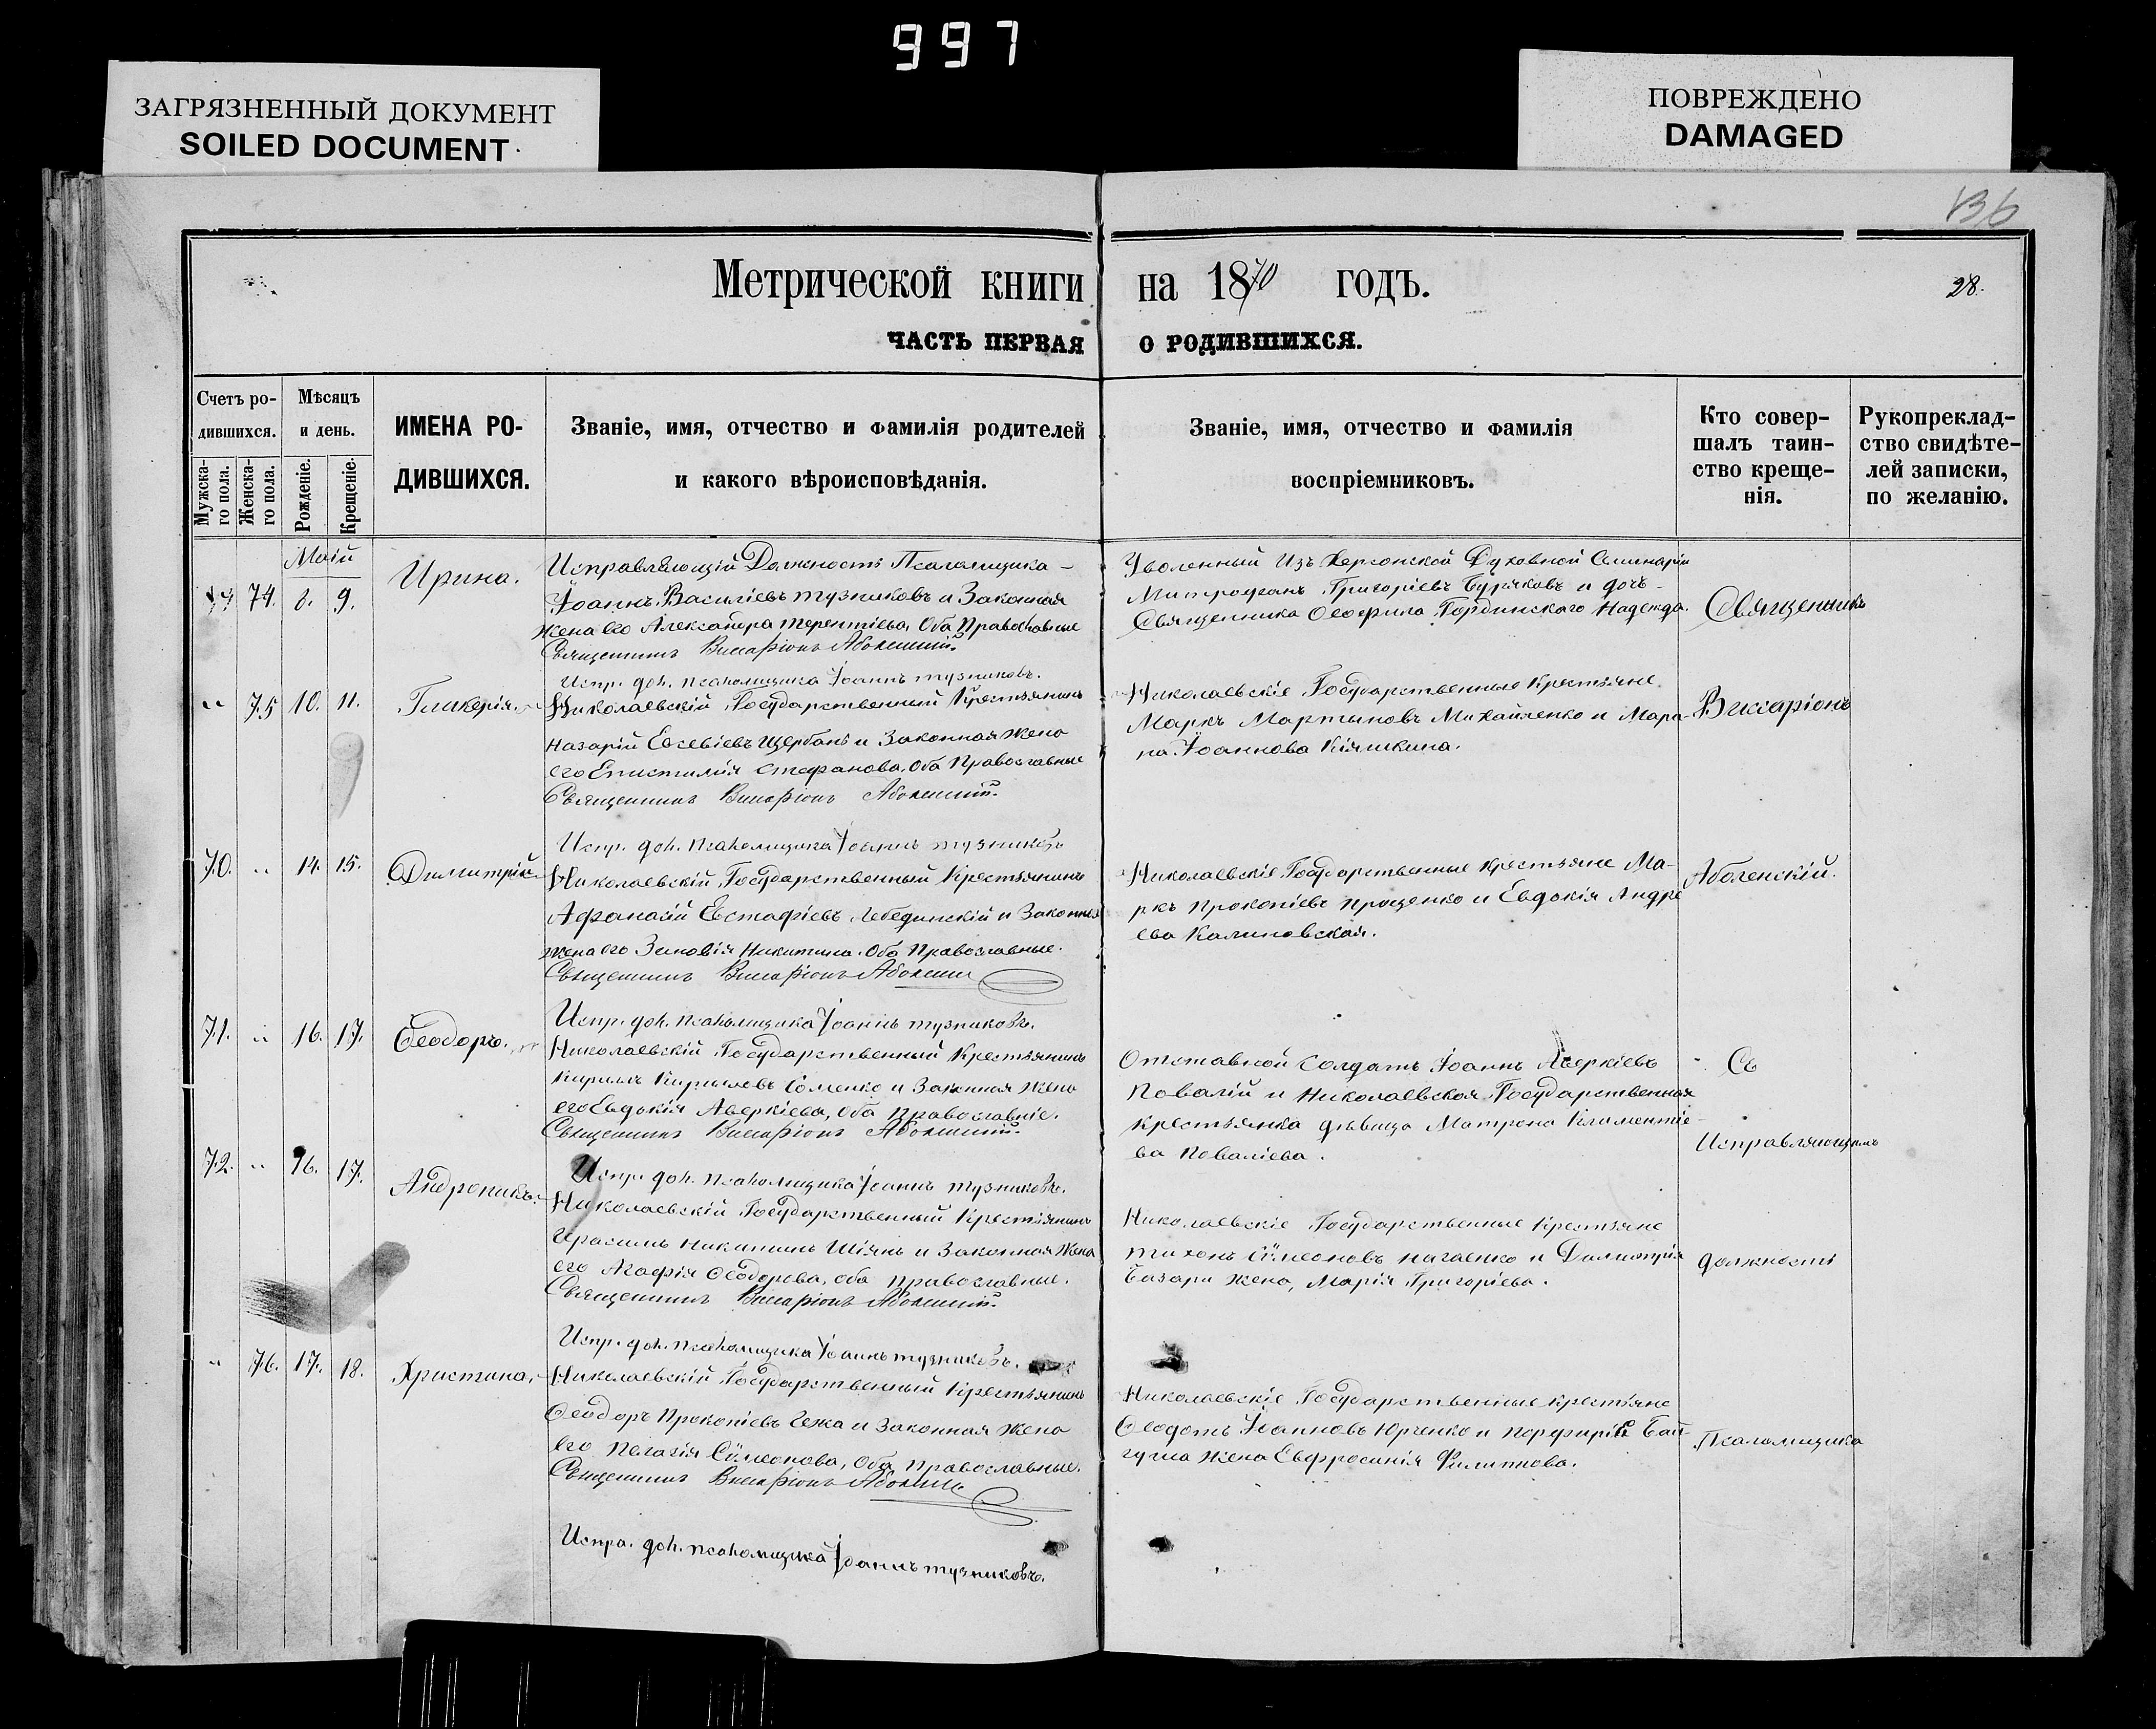 997
ЗАГРЯЗНЕННЫЙ ДОКУМЕНТ
SOILED DOCUMENT
ПОВРЕЖДЕНО
DAMAGED
136
Метрической книги на 1870 годъ.
28.
ЧАСТЬ ПЕРВАЯ О РОДИВШИХСЯ.
Счетъ ро-
дившихся.
Мужска-
го пола.
Женска-
го пола.
Мѣсяцъ
и день.
Рожденіе.
Крещеніе.
ИМЕНА РО-
ДИВШИХСЯ.
Званіе, имя, отчество и фамилія родителей
и какого вѣроисповѣданія.
Званіе, имя, отчество и фамилія
воспріемниковъ.
Кто совер-
шалъ таин-
ство креще-
нія.
Рукопреклад-
ство свидѣте-
лей записки,
по желанію.
Маій
74. 8. 9.
Ирина.
Исправляющій Должность Псаломщика
Іоаннъ Василіевъ Тузниковъ и Законная
жена его Александра Терентіева, Оба Православные
Священникъ Виссаріонъ Аболенскій.
Испр. дол. псаломщика Іоаннъ Тузниковъ.
Уволенный Изъ Херсонской Духовной Семинаріи
Митрофанъ Григоріевъ Буряковъ и дочь
Священника Ѳеофила Гординскаго Надежда.
Священникъ
" 75 10. 11.
Гликерія.
Николаевскій Государственный Крестьянинъ
Назарій Евсевіевъ Щербань и Законная жена
его Епистимія Стефанова. Оба Православные
Священникъ Виссаріонъ Аболенскій.
Испр. дол. псаломщика Іоаннъ Тузниковъ
Николаевскіе Государственные Крестьяне
Маркъ Мартыновъ Михайленко и Мари-
на Іоаннова Кіяшкина.
Виссаріонъ
70. " 14. 15.
Димитрій.
Николаевскій Государственный Крестьянинъ
Афанасій Евстафіевъ Лебединскій и Законная
жена его Зиновія Никитина. Оба Православные.
Священникъ Виссаріонъ Аболенскі
Испр. дол. псаломщика Іоаннъ Тузниковъ.
Николаевскіе Государственные Крестьяне Ма-
ркъ Прокопіевъ Проценко и Евдокія Андре
ева Калиновская.
Аболенскій.
71. " 16. 17.
Ѳеодоръ.
Николаевскій Государственный Крестьянинъ
Кириллъ Кирилловъ Соменко и Законная жена
его Евдокія Аверкіева, Оба Православніе.
Священникъ Виссаріонъ Аболенскій.
Испр. дол. псаломщика Іоаннъ Тузниковъ.
Отставной Солдатъ Іоаннъ Аверкіевъ
Повалій и Николаевская Государственная
крестьянка дѣвица Матрона Климентіе-
ва Поваліева.
Съ
Исправляющимъ
72. " 16. 17.
Андроникъ.
Николаевскій Государственный Крестьянинъ
Герасимъ Никитинъ Шіянъ и Законная жена
его Агафія Ѳеодорова, оба православные.
Священникъ Виссаріонъ Аболенскій.
Испр. дол. псаломщика Іоаннъ Тузниковъ.
Николаевскіе Государственные Крестьяне
Тихонъ Сѵмеоновъ Нагаенко и Димитрія
Базари жена, Марія Григоріева.
должность
" 76. 17. 18.
Христина.
Николаевскій Государственный Крестьянинъ
Ѳеодоръ Прокопіевъ Гежа и Законная жена
его Пелагія Сѵмеонова, Оба православные.
Священникъ Виссаріонъ Аболенс
Испра. дол. псаломщика Іоаннъ Тузниковъ.
Николаевскіе Государственные крестьяне
Ѳеодотъ Іоанновъ Юрченко и Порфирія Бай-
гуша жена Евфросинія Филиппова.
Псаломщика